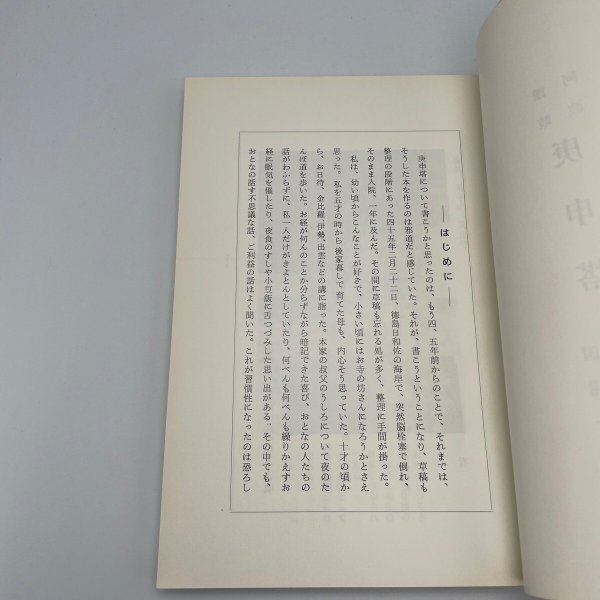 ――はじめに――
庚申塔について書こうかと思ったのは、もう四、五年前からのことで、それまでは、
そうした本を作るのは邪道だと感じていた。それが、書こうということになり、草稿も
整理の段階にあった四十五年二月二十二日、徳島日和佐の海岸で、突然脳栓塞で倒れ、
そのまま入院、一年に及んだ。その間に草稿も忘れる処が多く、整理に手間が掛った。
私は、幼い頃からこんなことが好きで、小さい頃にはお寺の坊さんになろうかとさえ
思った。私を五才の時から後家暮しで育てた母も、内心そう思っていた。十才の頃か
ら、お日待、金比羅、伊勢、出雲などの講に詣った。本家の叔父のうしろについて夜のた
んぼ道を歩いた。お経が何んのことか分らずながら暗記できた喜び、おとなの人たちの
話がわからずに、私一人だけがきよとんとしていたり、何べんも何べんも繰りかえすお
経に眠気を催したり、夜食のすしや小豆飯に舌つづみした思い出がある。その中でも、
おとなの話す不思議な話、ご利益の話はよく聞いた。これが習慣性になったのは恐ろし
庚申塔